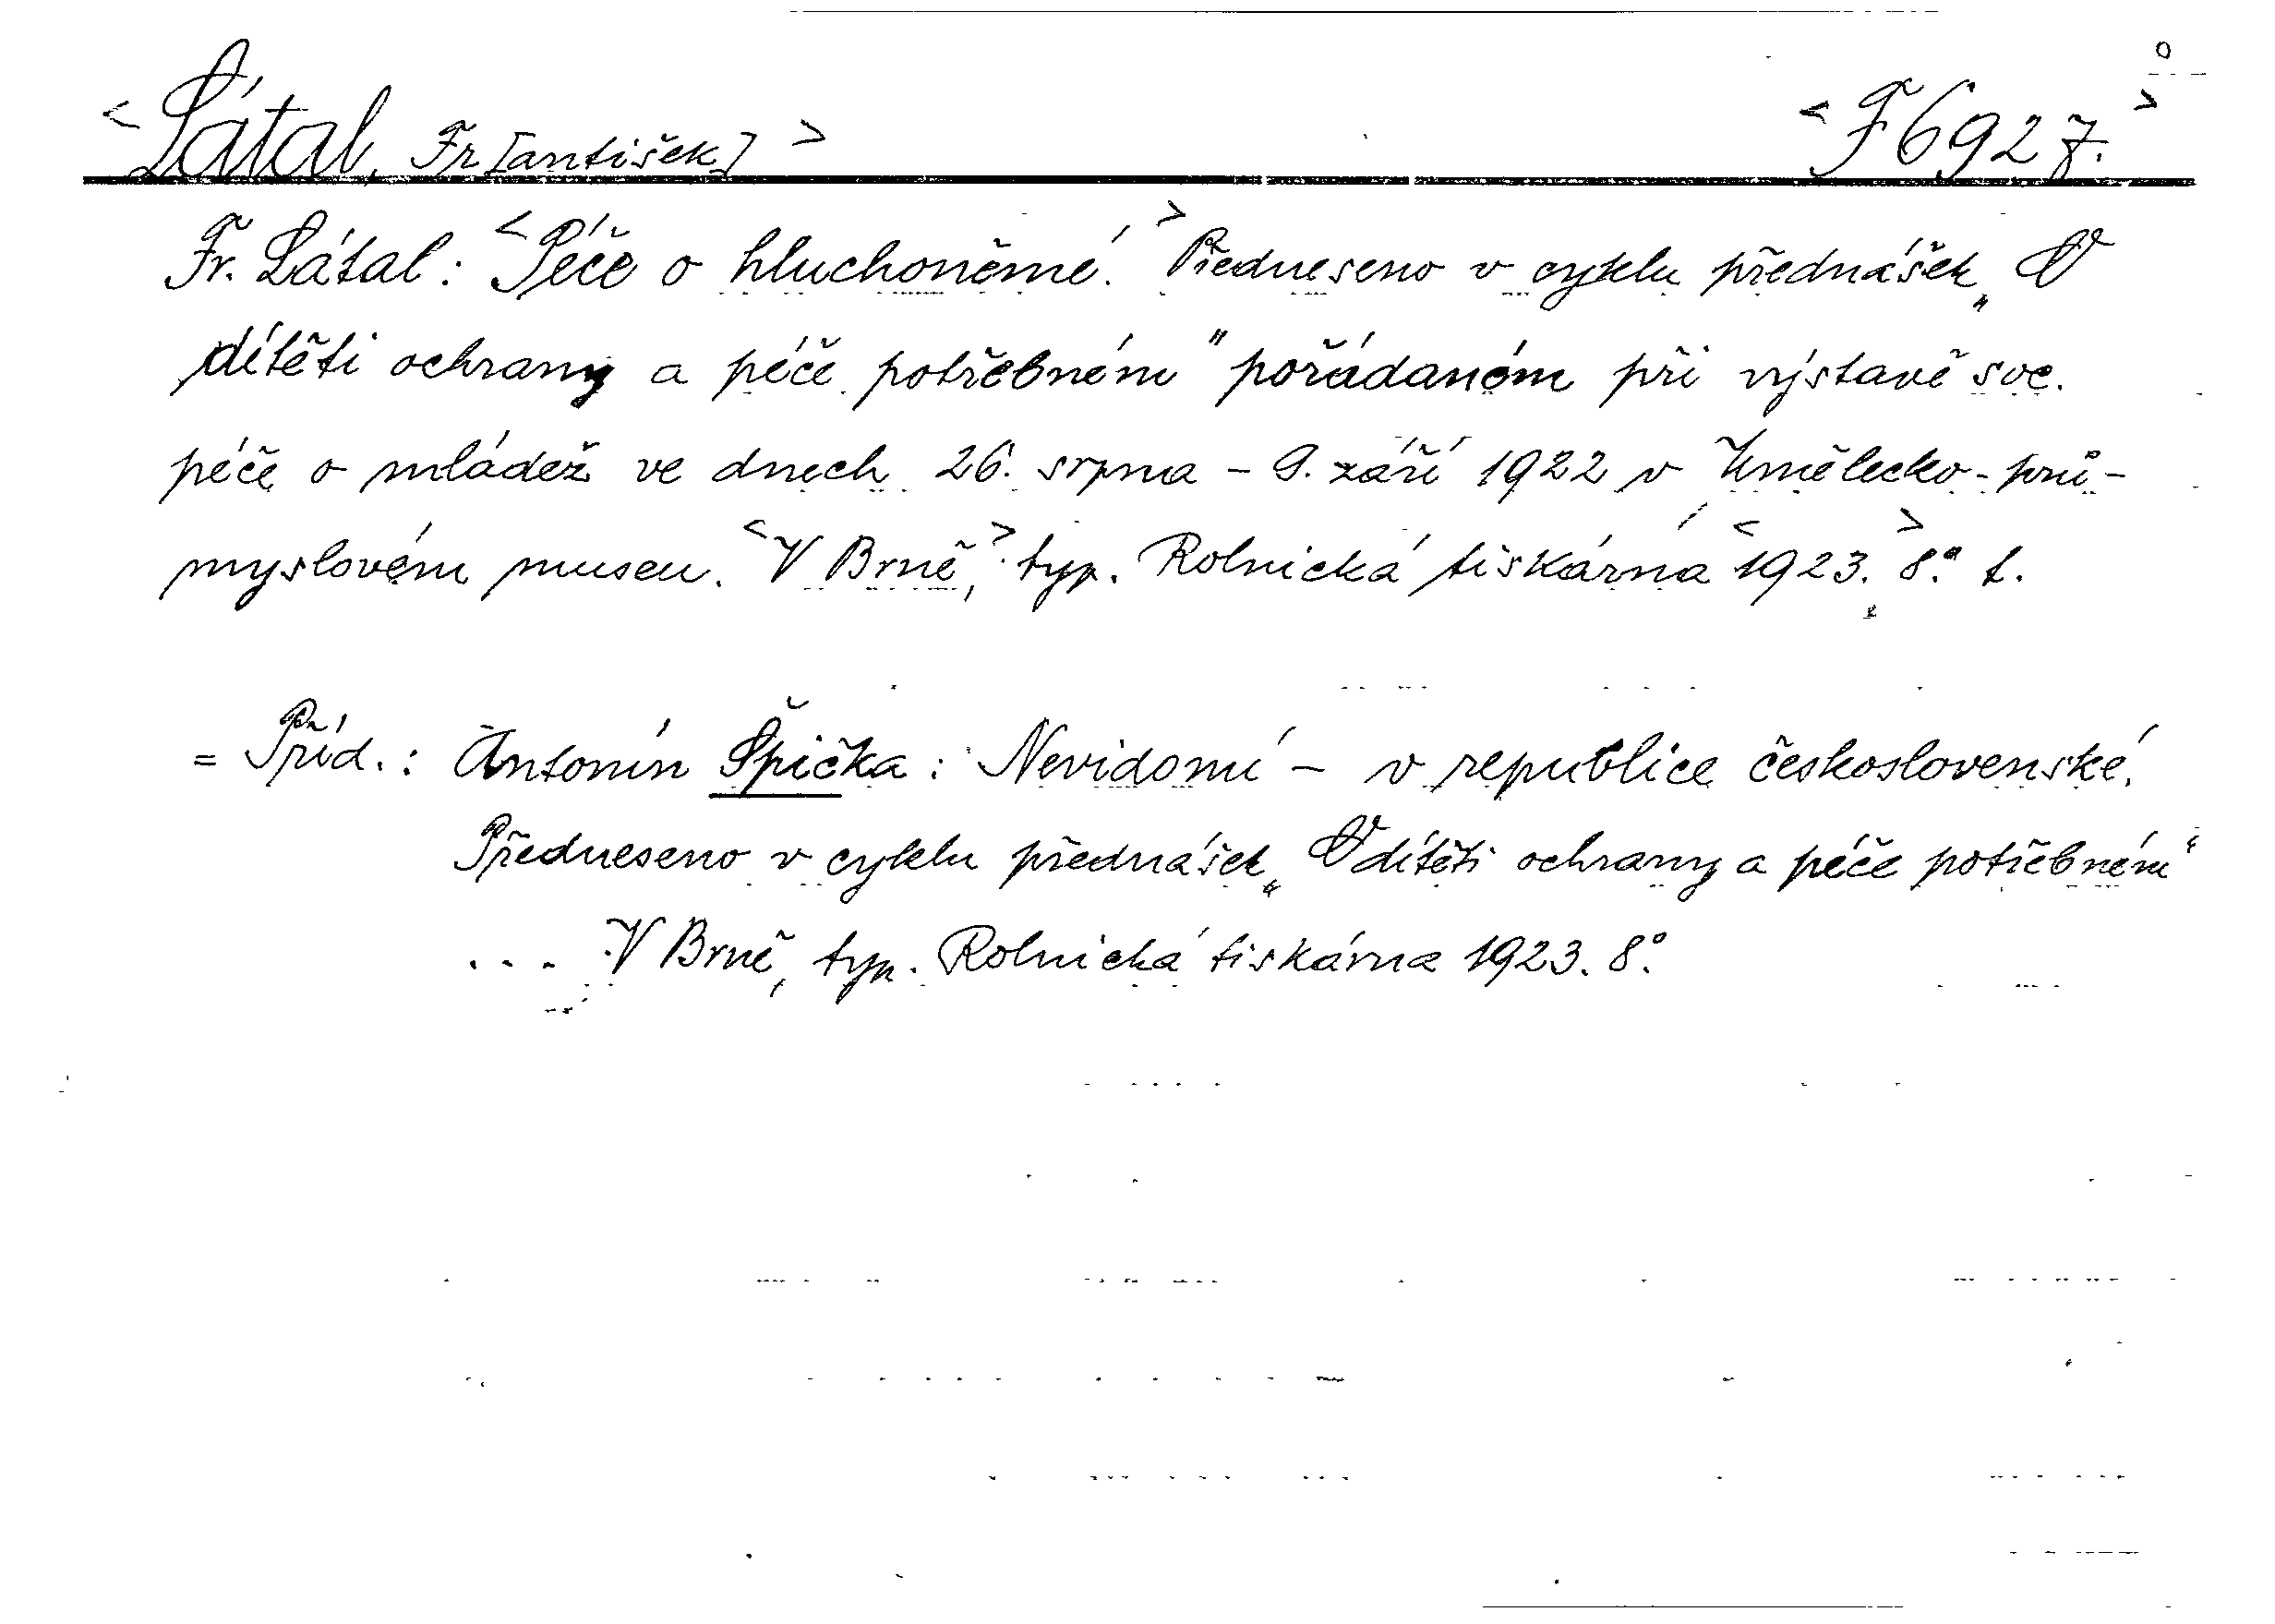 <Látal, Fr[antišek]> <F 6927.>
Fr. Látal: <Péče o hluchoněmé.> Předneseno v cyklu přednášek „O
dítěti ochrany a péče potřebném" pořádaném při výstavě soc.
péče o mládež ve dnech 26. srpna - 9. září 1922 v Umělecko-prů-
myslovém museu. <V Brně,> typ. Rolnická tiskárna <1923.> 8°. t.
= Příd.: Antonín Špička: Nevidomí - v republice československé.
Předneseno v cyklu přednášek „O dítěti ochrany a péče potřebném"
... V Brně, typ. Rolnická tiskárna 1923. 8°.